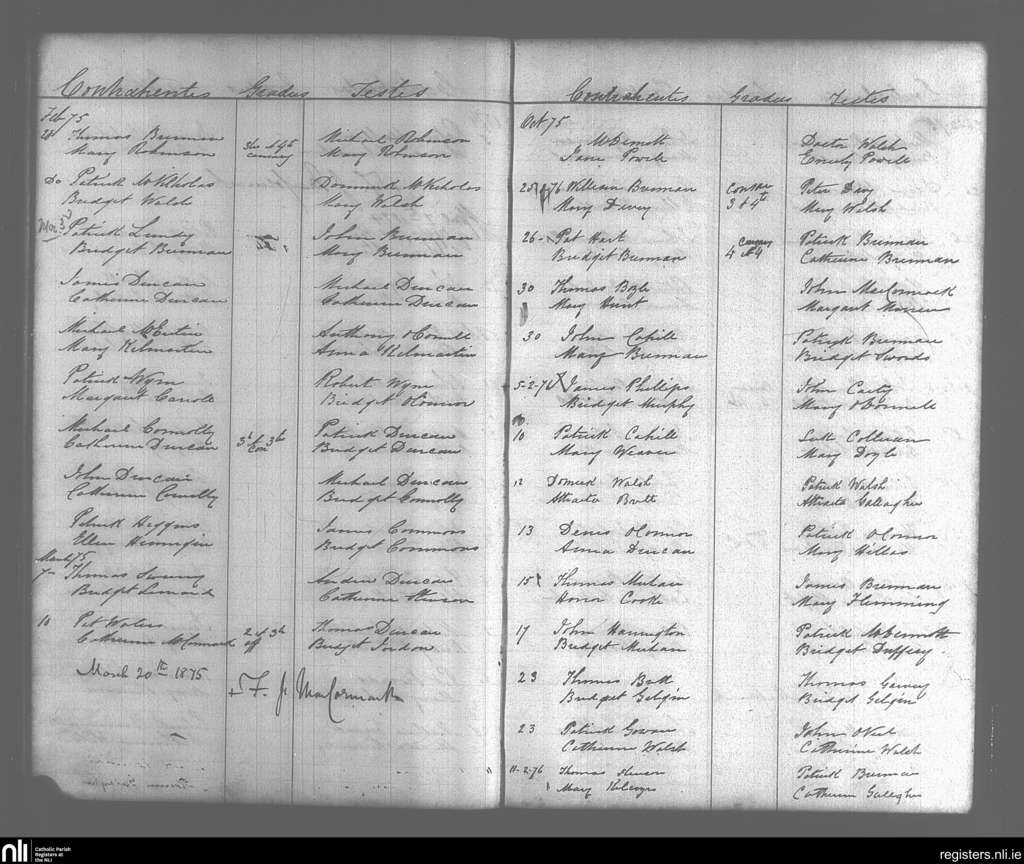 Contrahentes Gradus Testes
Feb 75
28 Thomas Brennan Michael Robinson
Mary Robinson Mary Robinson
Do Patrick McNicholas Dominick McNicholas
Bridget Walsh Mary Walsh
Mar 3d Patrick Lundy John Brennan
Bridget Brennan Mary Brennan
James Duncan Michael Duncan
Catherine Duncan Catherine Duncan
Michael Anthony
Mary Kilmartin Anna Kilmartin
Patrick Wynn Robert Wynn
Margaret Carroll Bridget OConnor
Michael Connolly Patrick Duncan
Catherine Duncan Bridget Duncan
John Duncan Michael Duncan
Catherine Connolly Bridget Connolly
Patrick Higgins James Commons
Ellen Bridget Commons
March 75
7 Thomas Andrew Duncan
Bridget Catherine
10 Pat Waters 2 & 3d Thomas Duncan
Catherine Bridget Jordan
March 20th 1875
+ F. J. MacCormack
Contrahentes Gradus Testes
Oct 75
McDermott Doctor Walsh
Jane Powell Emily Powell
William Brennan Peter Davy
Mary Davey 3 & 4th Mary Walsh
26 Pat Hart Patrick Brennan
Bridget Brennan 4 & 4 Catherine Brennan
30 Thomas Boyle John MacCormack
Mary Hunt Margaret
30 John Cahill Patrick Brennan
Mary Brennan Bridget Swords
5-2-76 James Phillips John Carty
Bridget Murphy Mary OConnell
10 Patrick Cahill Luke Colleran
Mary Weaver Mary Doyle
12 Domick Walsh Patrick Walsh
Attracta Attracta Gallagher
13 Denis OConnor Patrick OConnor
Anna Duncan Mary
15 Thomas Meehan James Brennan
Honor Cooke Mary Flemming
17 John Harrington Patrick McDermott
Bridget Meehan Bridget Duffecy
23 Thomas Thomas Garvey
Bridget Gilgin Bridget Gilgin
23 Patrick Gowan John ONeil
Catherine Walsh Catherine Walsh
11-2-76 Thomas Patrick Brennan
Mary Catherine Gallagher
nli Catholic Parish
Registers at
the NLI
registers.nli.ie